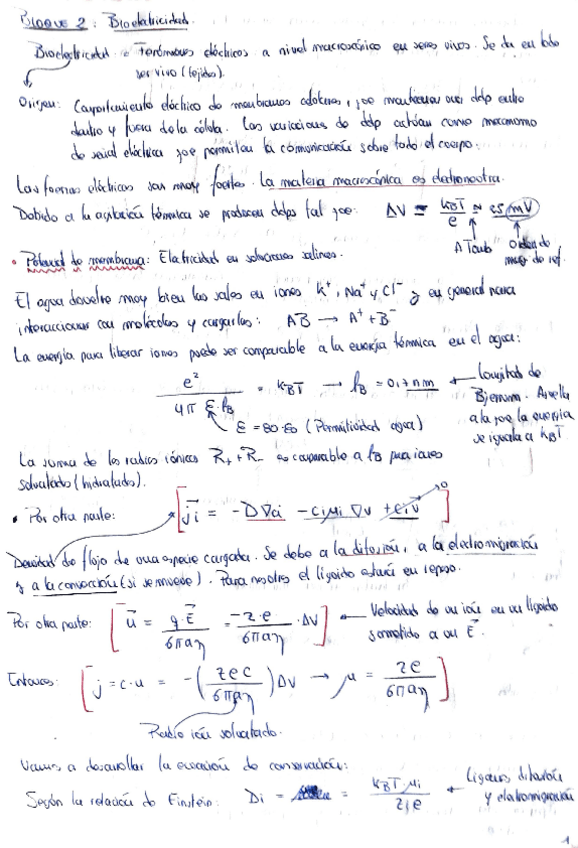 BLOQUE 2: Bioelectricidad.
Bioelectricidad = Fenómenos eléctricos a nivel macroscópico en seres vivos. Se da en todo
ser vivo (tejidos).
Origen: Comportamiento eléctrico de membranas celulares, que mantienen una ddp entre
dentro y fuera de la célula. Las variaciones de ddp actúan como mecanismo
de señal eléctrica que permiten la comunicación sobre todo el cuerpo.
Las fuerzas eléctricas son muy fuertes. La materia macroscópica es electroneutra.
Debido a la agitación térmica se producen ddps tal que: ΔV = kBT/e ≈ 25 mV
A Tamb Orden de
mag. de ref.
• Potencial de membrana: Electricidad en soluciones salinas.
El agua disuelve muy bien las sales en iones K⁺, Na⁺ y Cl⁻ y en general para
interaccionar con moléculas y cargarlas: AB → A⁺ + B⁻
La energía para liberar iones puede ser comparable a la energía térmica en el agua:
e²/(4π ε·lB) = kBT → lB = 0,7 nm ← Longitud de
Bjerrum. Aquella
a la que la energía
se iguala a kBT
ε = 80·ε0 (Permitividad agua)
La suma de los radios iónicos R₊ + R₋ es comparable a lB para iones
solvatados (hidratados).
• Por otra parte: [j⃗i = -D∇ci - ciμi ∇v + civ⃗] 0
Densidad de flujo de una especie cargada. Se debe a la difusión, a la electromigración
y a la convección (si se mueve). Para nosotros el líquido estará en reposo.
Por otra parte: [u⃗ = q·E⃗/6πaη = -z·e/6πaη · ΔV] ← Velocidad de un ión en un líquido
sometido a un E⃗.
Entonces: [j = c·u = -(zec/6πaη)ΔV → μ = ze/6πaη]
Radio ión solvatado.
Vamos a desarrollar la ecuación de conservación:
Según la relación de Einstein: Di = = kBT μi/zie ← Ligamos difusión
y electromigración
1